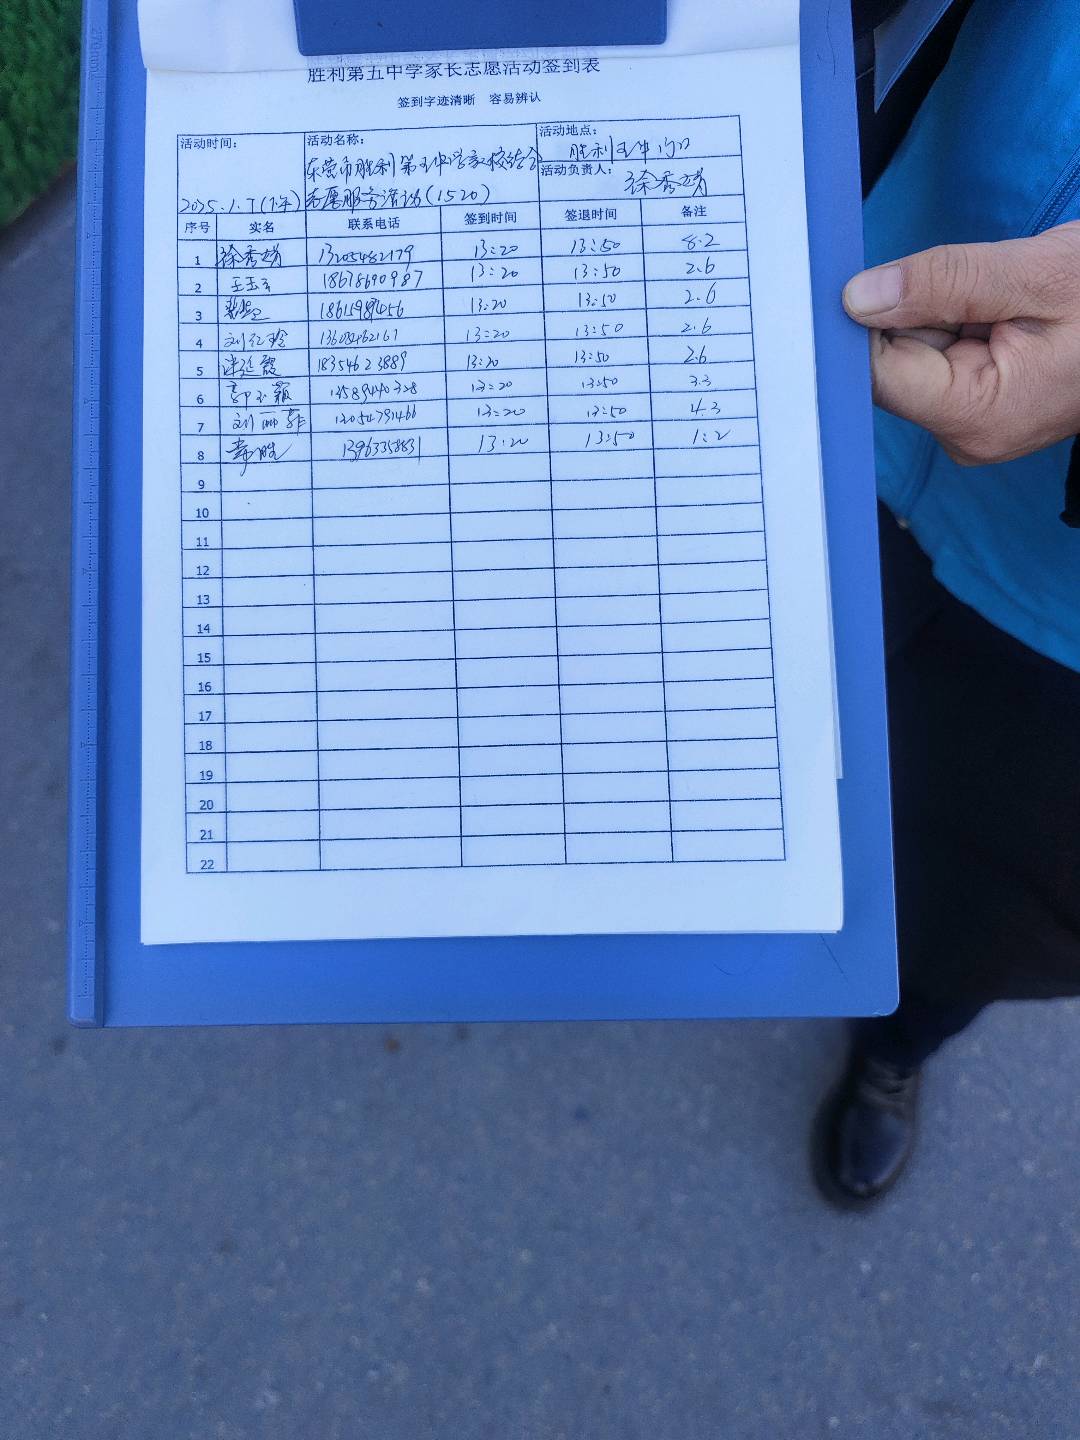 胜利第五中学家长志愿活动签到表
签到字迹清晰 容易辨认
活动时间： 活动名称： 活动地点：
东营市胜利第五中学家校结合 胜利五中门口
活动负责人： 徐秀靖
2025.1.7(下午) 志愿服务活动(1520)
序号 实名 联系电话 签到时间 签退时间 备注
1 徐秀靖 13205482179 13:20 13:50 8.2
2 王玉 18678690987 13:20 13:50 2.6
3 13:20 13:50 2.6
4 刘红玲 13:20 13:50 2.6
5 18354623889 13:20 13:50 2.6
6 13589440328 13:20 13:50 3.3
7 刘丽菲 13054791466 13:20 13:50 4.3
8 13963358831 13:20 13:50 1:2
9
10
11
12
13
14
15
16
17
18
19
20
21
22